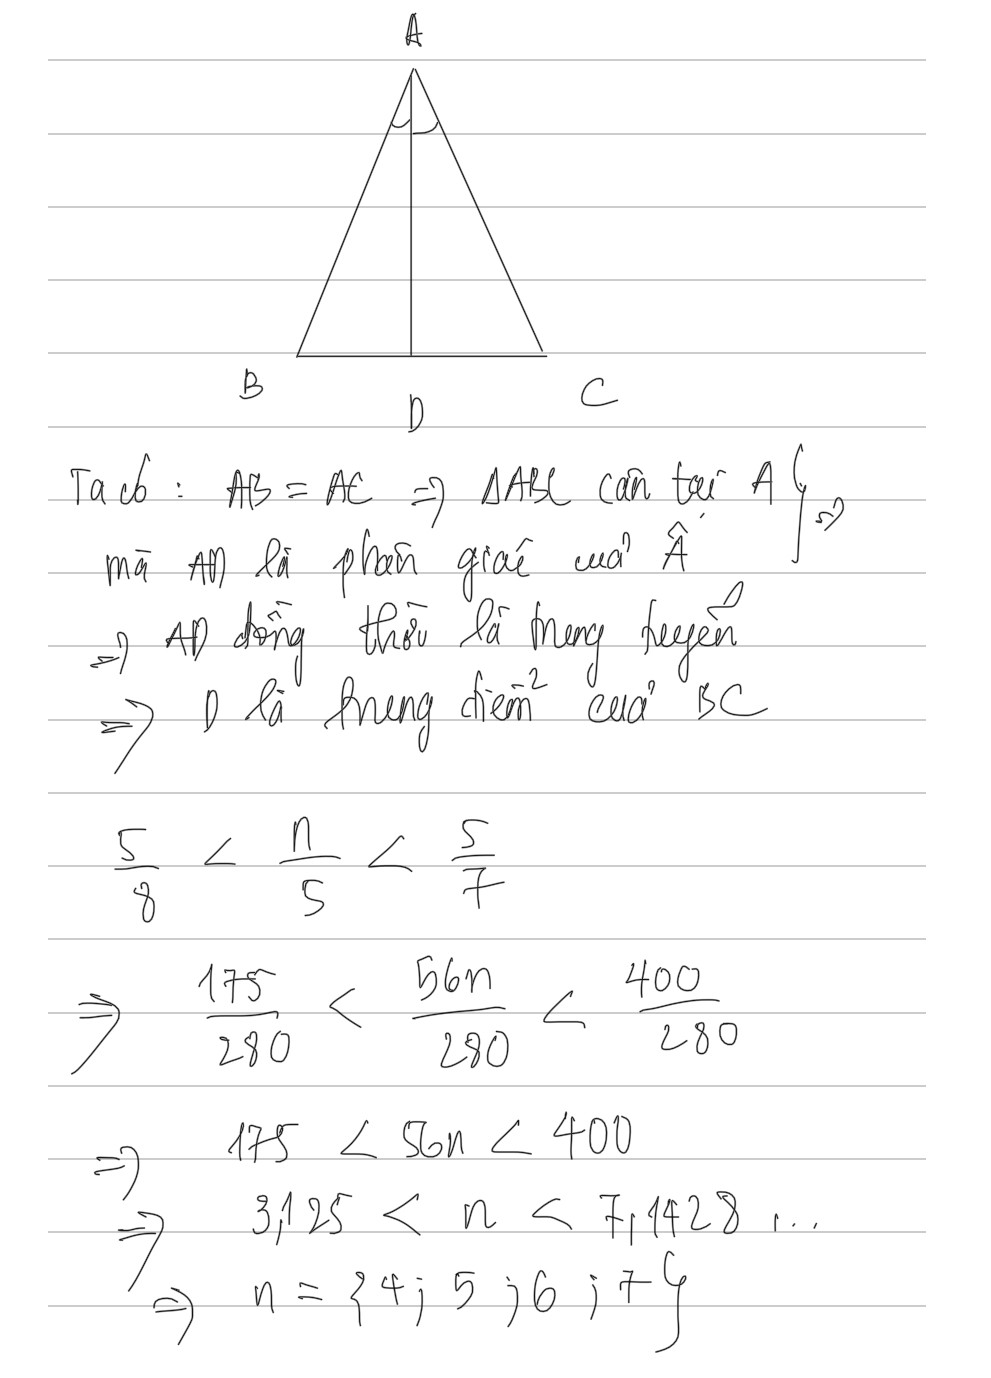 A
B
D
C
Ta có : AB = AC => ΔABC cân tại A } =>
mà AD là phân giác của Â
=> AD đồng thời là trung tuyến
=> D là trung điểm của BC
5/8 < n/5 < 5/7
=> 175/280 < 56n/280 < 400/280
=> 175 < 56n < 400
=> 3,125 < n < 7,1428...
=> n = {4; 5; 6; 7}